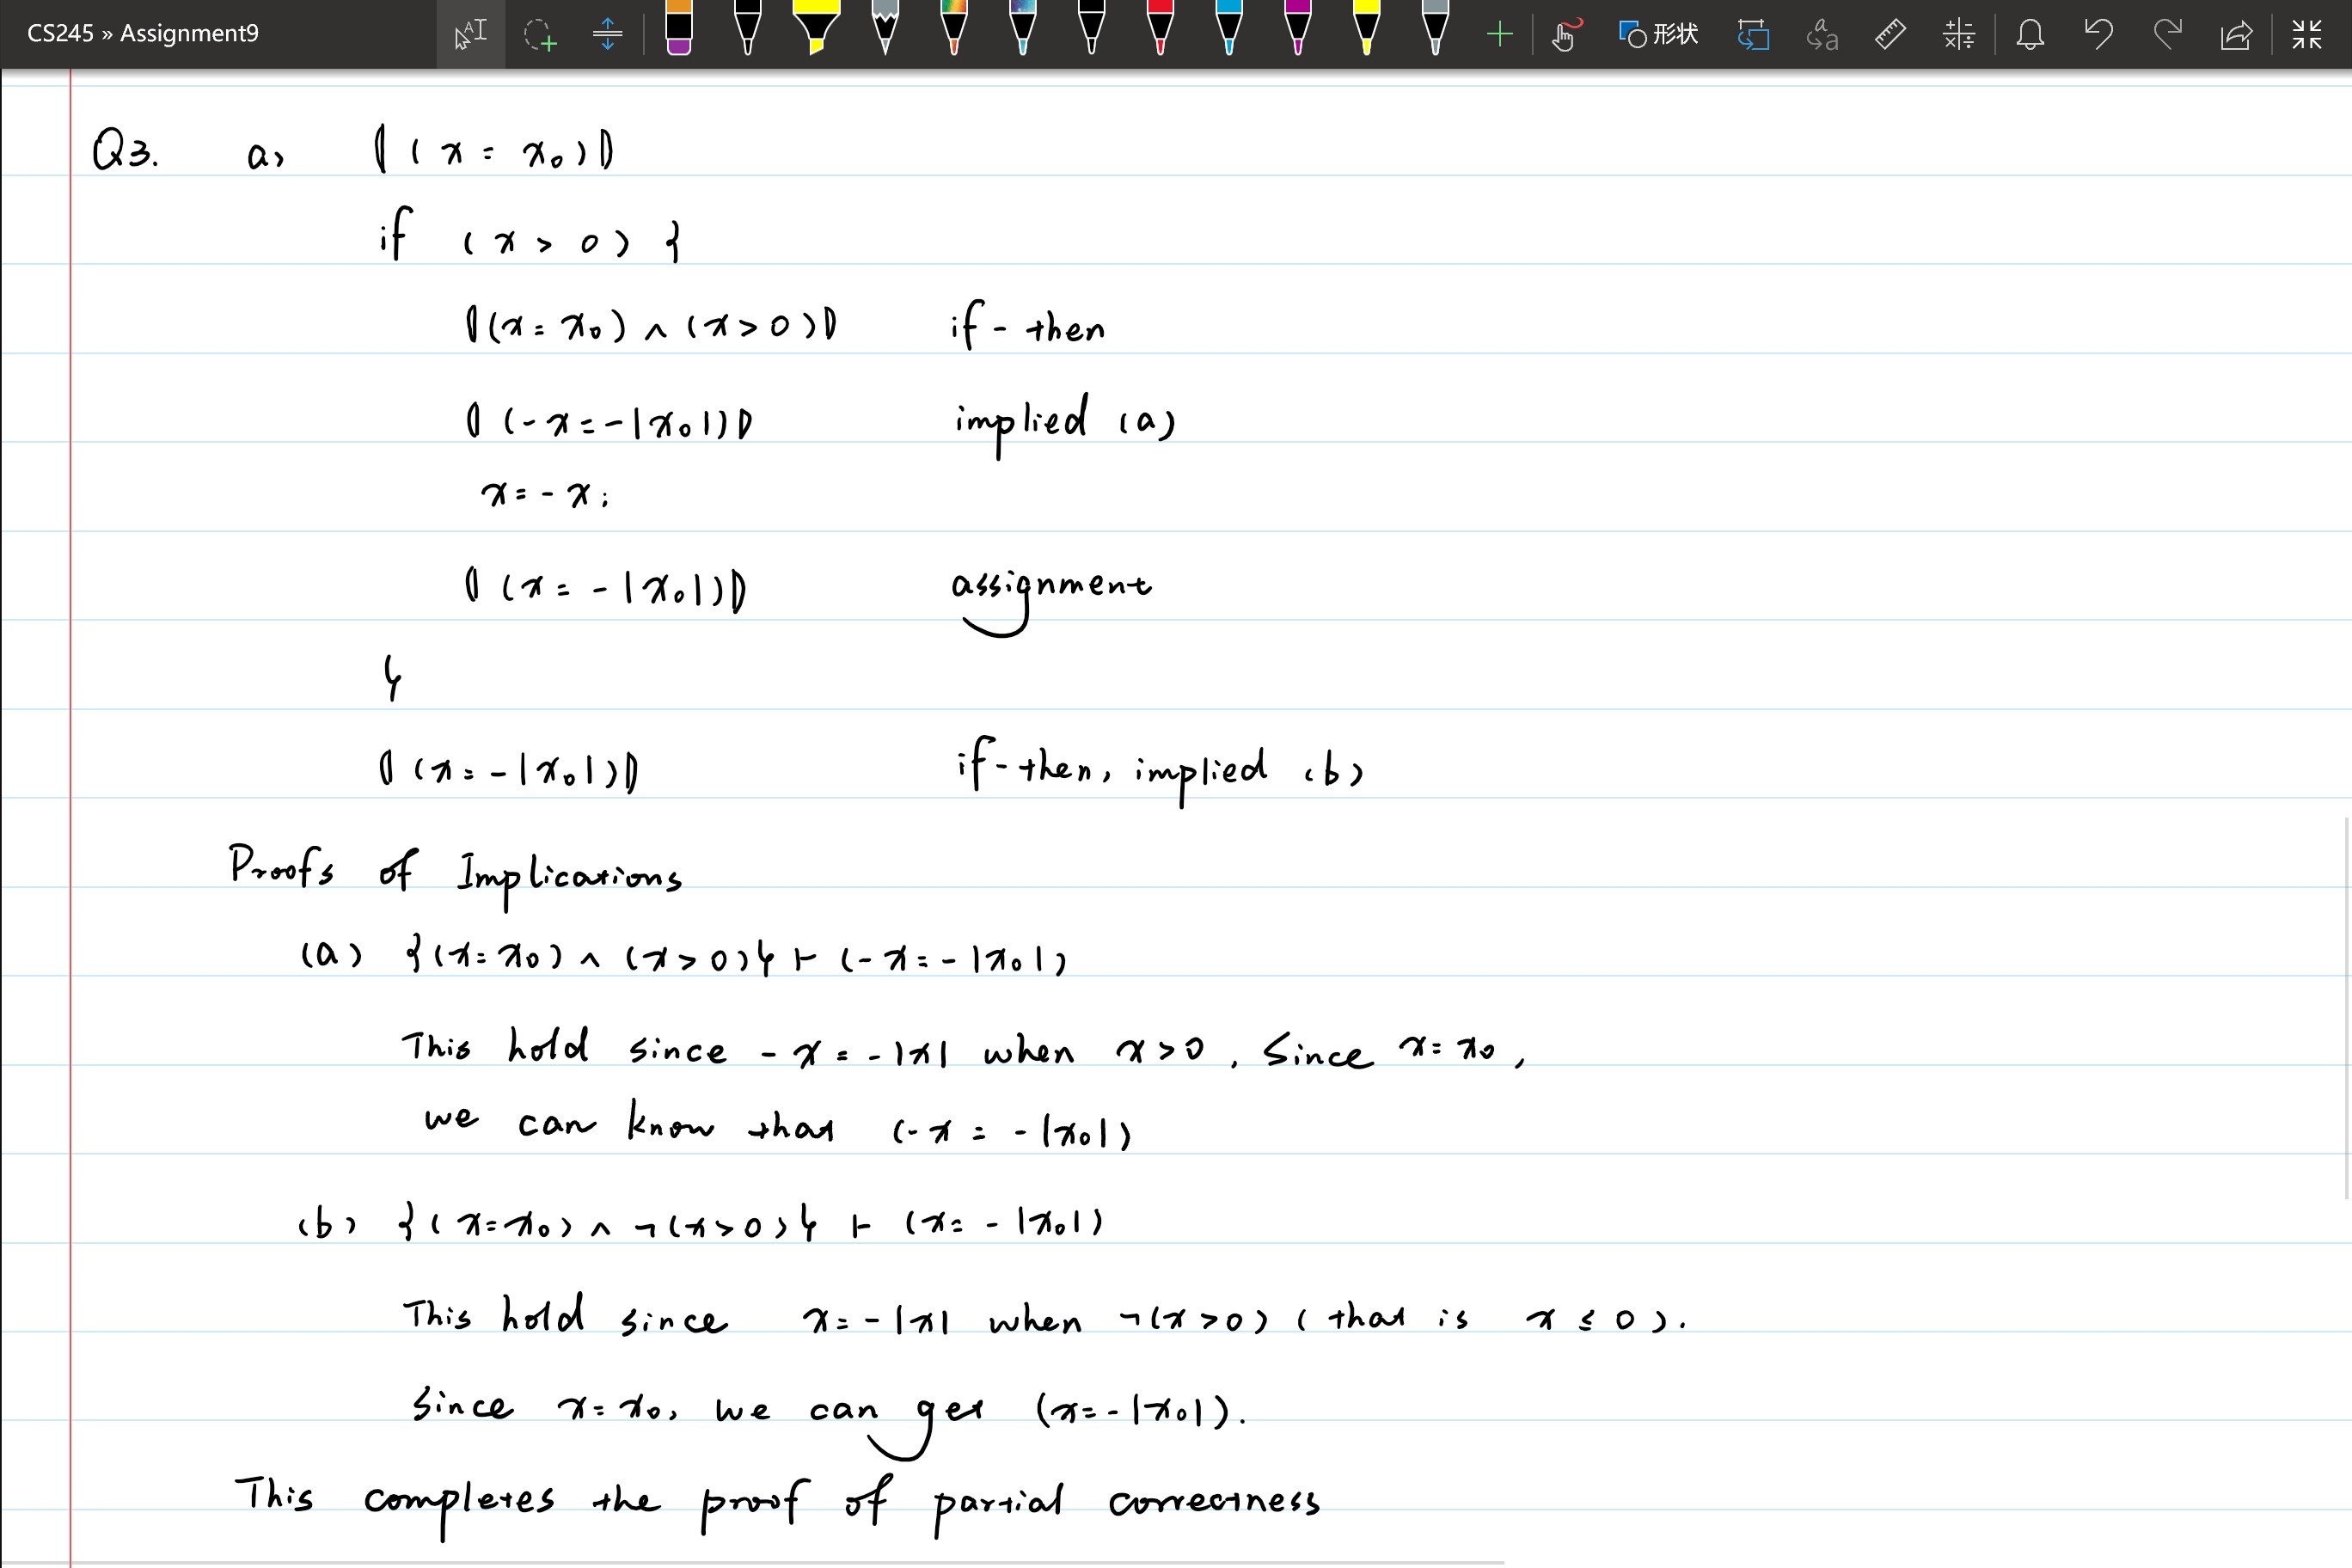 CS245 » Assignment9
形状
Q3. a) ⦇(x = x₀)⦈
if (x > 0) {
⦇(x = x₀) ∧ (x > 0)⦈ if-then
⦇(-x = -|x₀|)⦈ implied (a)
x = -x;
⦇(x = -|x₀|)⦈ assignment
}
⦇(x = -|x₀|)⦈ if-then, implied (b)
Proofs of Implications
(a) {(x = x₀) ∧ (x > 0)} ⊢ (-x = -|x₀|)
This hold since -x = -|x| when x > 0. Since x = x₀,
we can know that (-x = -|x₀|)
(b) {(x = x₀) ∧ ¬(x > 0)} ⊢ (x = -|x₀|)
This hold since x = -|x| when ¬(x > 0) (that is x ≤ 0).
Since x = x₀, we can get (x = -|x₀|).
This completes the proof of partial correctness